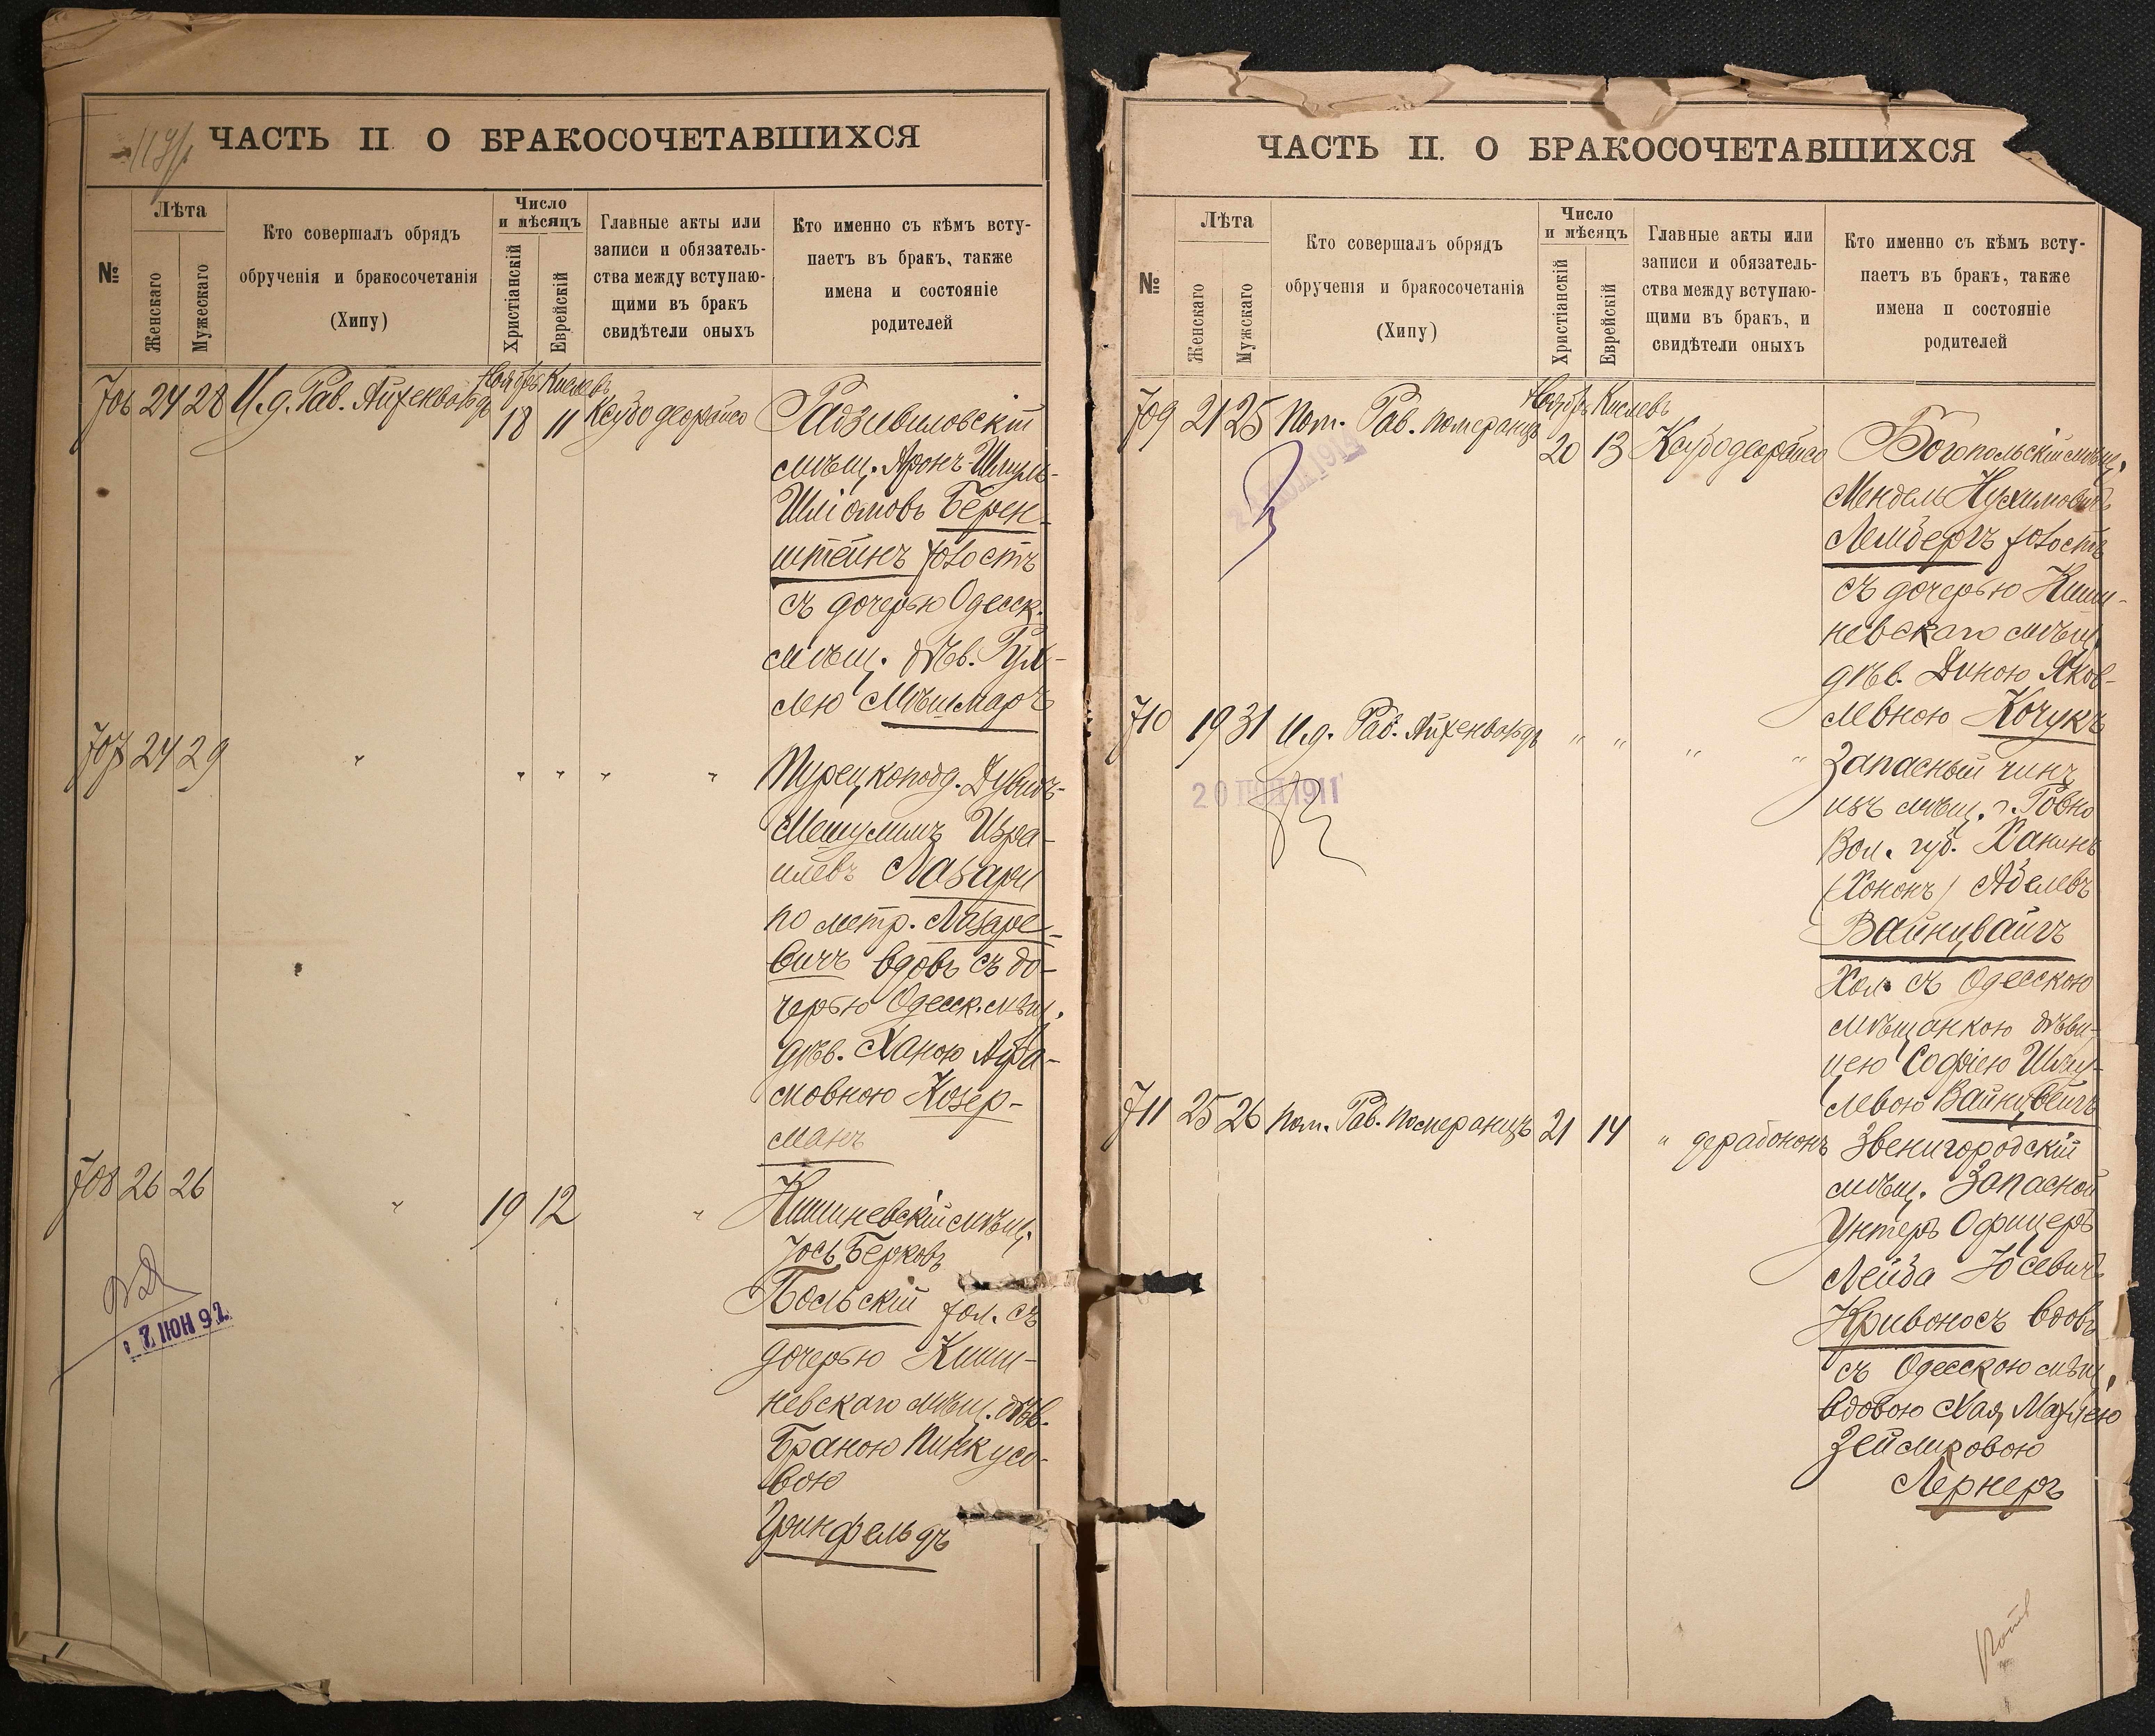 ЧАСТЬ II О БРАКОСОЧЕТАВШИХСЯ
№
Лѣта
Женскаго
Мужескаго
Кто совершалъ обрядъ
обрученія и бракосочетанія
(Хипу)
Число
и мѣсяцъ
Христіанскій
Еврейскій
Главные акты или
записи и обязатель-
ства между вступаю-
щими въ бракъ
свидѣтели оныхъ
Кто именно съ кѣмъ всту-
паетъ въ бракъ, также
имена и состояніе
родителей
Ноябрь Кислевъ
706 24 28 И.д. Рав. Айхенвальдъ 18 11
Радзивиловскій
мѣщ. Аронъ-Шмуль-
Шліомовъ Берен-
штейнъ холостъ
съ дочерью Одесск.
мѣщ. дѣв. Рух-
лею
707 24 29 " " " " "
Турецкоподд. Дувидъ-
Мешулимъ Изра-
илевъ Лазари
по метр. Лазаре-
вичъ вдовъ съ до-
черью Одесск. мѣщ.
дѣв. Ханою Абра-
мовною Козер-
манъ
708 26 26 " 19 12 "
Кишиневскій мѣщ.
Іось Берковъ
Польскій хол. съ
дочерью Киши-
невскаго мѣщ. дѣв.
Браною Пинкусо-
вою
Гринфельдъ
ЧАСТЬ II. О БРАКОСОЧЕТАВШИХСЯ
№
Лѣта
Женскаго
Мужскаго
Кто совершалъ обрядъ
обрученія и бракосочетанія
(Хипу)
Число
и мѣсяцъ
Христіанскій
Еврейскій
Главные акты или
записи и обязатель-
ства между вступаю-
щими въ бракъ, и
свидѣтели оныхъ
Кто именно съ кѣмъ всту-
паетъ въ бракъ, также
имена и состояніе
родителей
Ноябрь Кислевъ
709 21 25 Пом. Рав. Померанцъ 20 13
Богопольскій мѣщ.
Мендель Нухимовичъ
Лембергъ холостъ
съ дочерью Киши-
невскаго мѣщ.
дѣв. Диною Яков-
левною Кочукъ
710 19 31 И.д. Рав. Айхенвальдъ " " " "
20 1911
Запасный чинъ
изъ мѣщ. г. Ровно
Вол. губ. Ханинъ
(Хононъ) Абелевъ
Вайнцвайгъ
Хол. съ Одесскою
мѣщанкою дѣви-
цею Софіею Шму-
левою Вайнцвейгъ
711 25 26 Пом. Рав. Померанцъ 21 14 "
Звенигородскій
мѣщ. Запасной
Унтеръ Офицеръ
Лейба Іосевичъ
Кривоносъ вдовъ
съ Одесскою мѣщ.
вдовою Хая Махлею
Зейликовою
Лернеръ